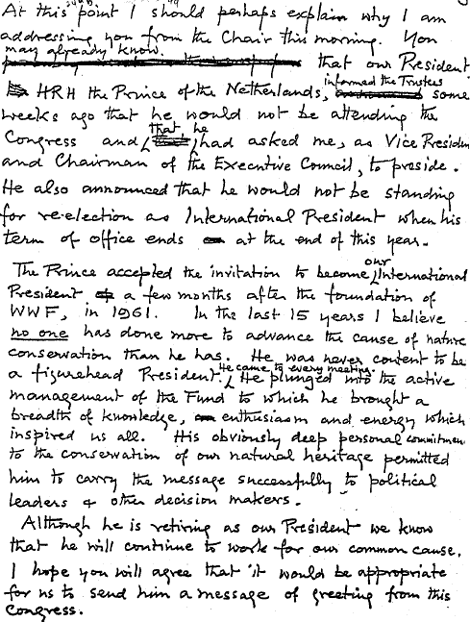 At this point I should perhaps explain why I am
addressing you from the Chair this morning. You
may already know
that our President
HRH the Prince of the Netherlands, informed the Trustees some
weeks ago that he would not be attending the
Congress and that he had asked me, as Vice President
and Chairman of the Executive Council, to preside.
He also announced that he would not be standing
for re-election as International President when his
term of office ends at the end of this year.
The Prince accepted the invitation to become our International
President a few months after the foundation of
WWF, in 1961. In the last 15 years I believe
no one has done more to advance the cause of nature
conservation than he has. He was never content to be
a figurehead President. He came to every meeting. He plunged into the active
management of the Fund to which he brought a
breadth of knowledge, enthusiasm and energy which
inspired us all. His obviously deep personal commitment
to the conservation of our natural heritage permitted
him to carry the message successfully to political
leaders & other decision makers.
Although he is retiring as our President we know
that he will continue to work for our common cause.
I hope you will agree that it would be appropriate
for us to send him a message of greeting from this
Congress.